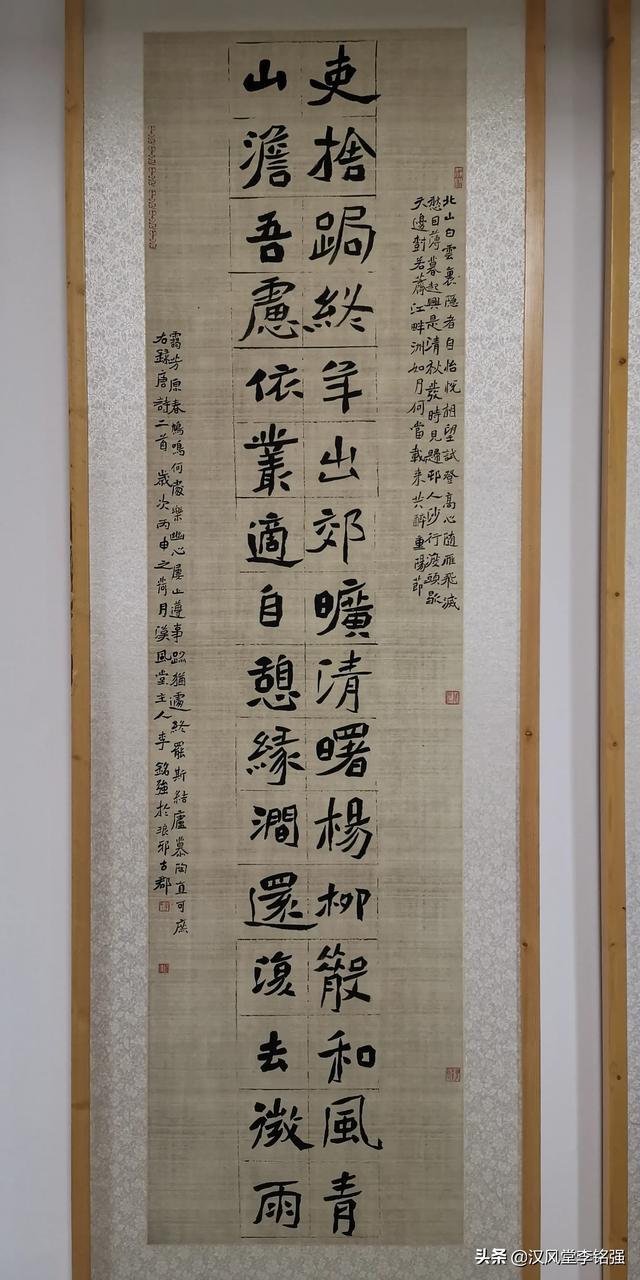 北山白雲裏隱者自怡悅相望試登高心隨雁飛滅
愁因薄暮起興是清秋發時見歸邨人沙行渡頭歇
天邊樹若薺江畔洲如月何當載来共醉重陽節
吏捨跼終年出郊曠清曙楊柳散和風青
山澹吾慮依叢適自憩緣澗還復去微雨
靄芳原春鳩鳴何處樂幽心屢止遵事跡猶遽終罷斯結廬慕陶直可庶
右錄唐詩二首 歲次丙申之荷月漢風堂主人李銘強於琅邪古郡
头条 @汉风堂李铭强